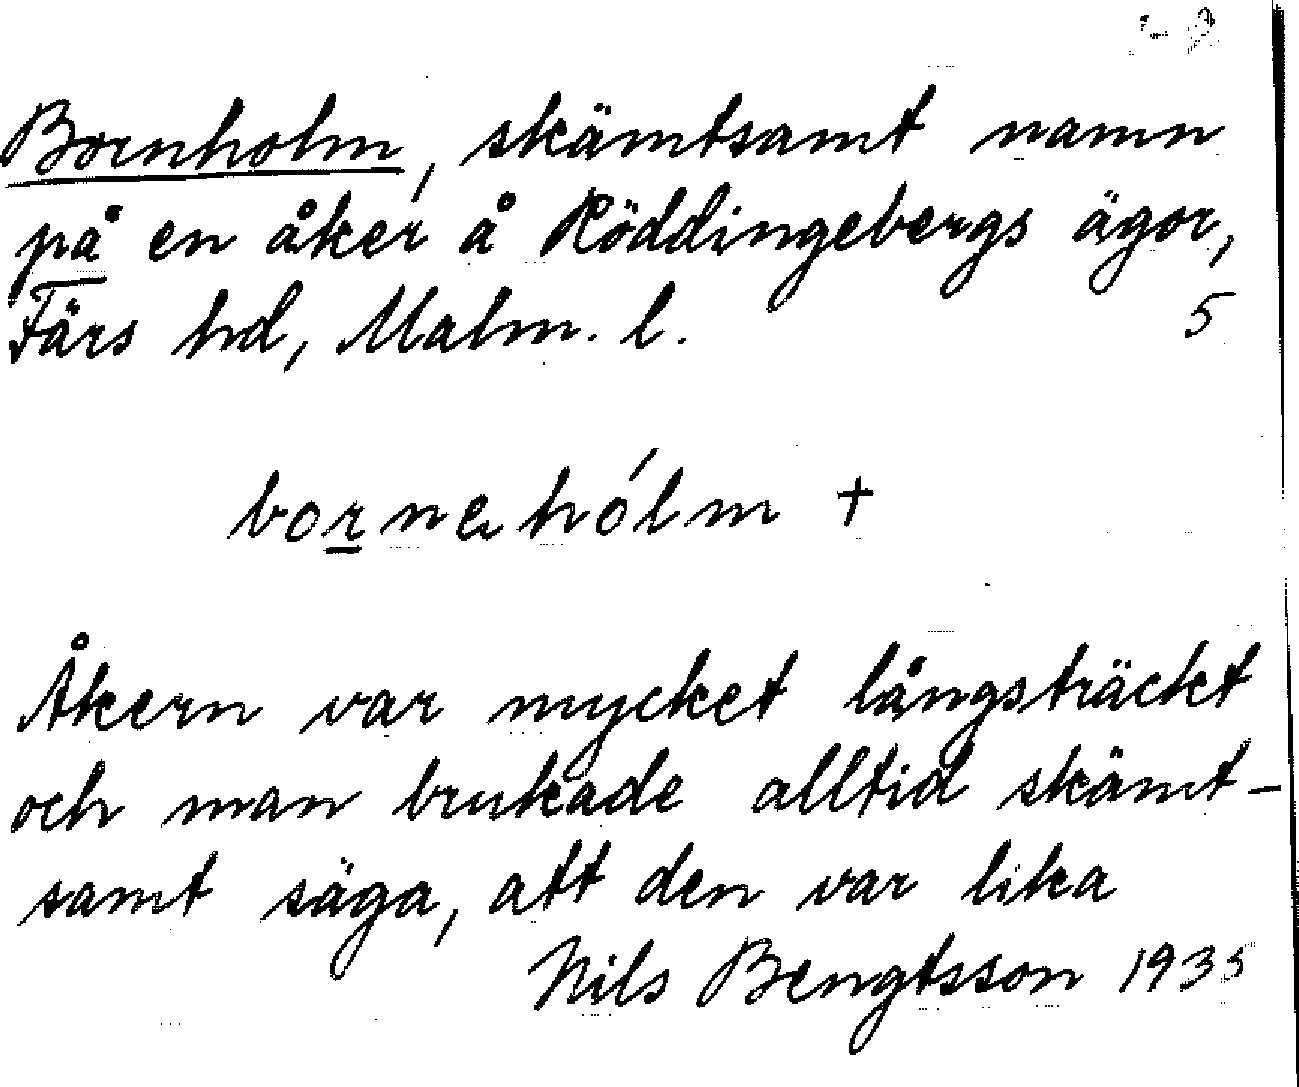 Bornholm, skämtsamt namn
på en åker å Röddingebergs ägor,
Färs hd, Malm. l. 5
bornehólm +
Åkern var mycket långsträckt
och man brukade alltid skämt-
samt säga, att den var lika
Nils Bengtsson 1935